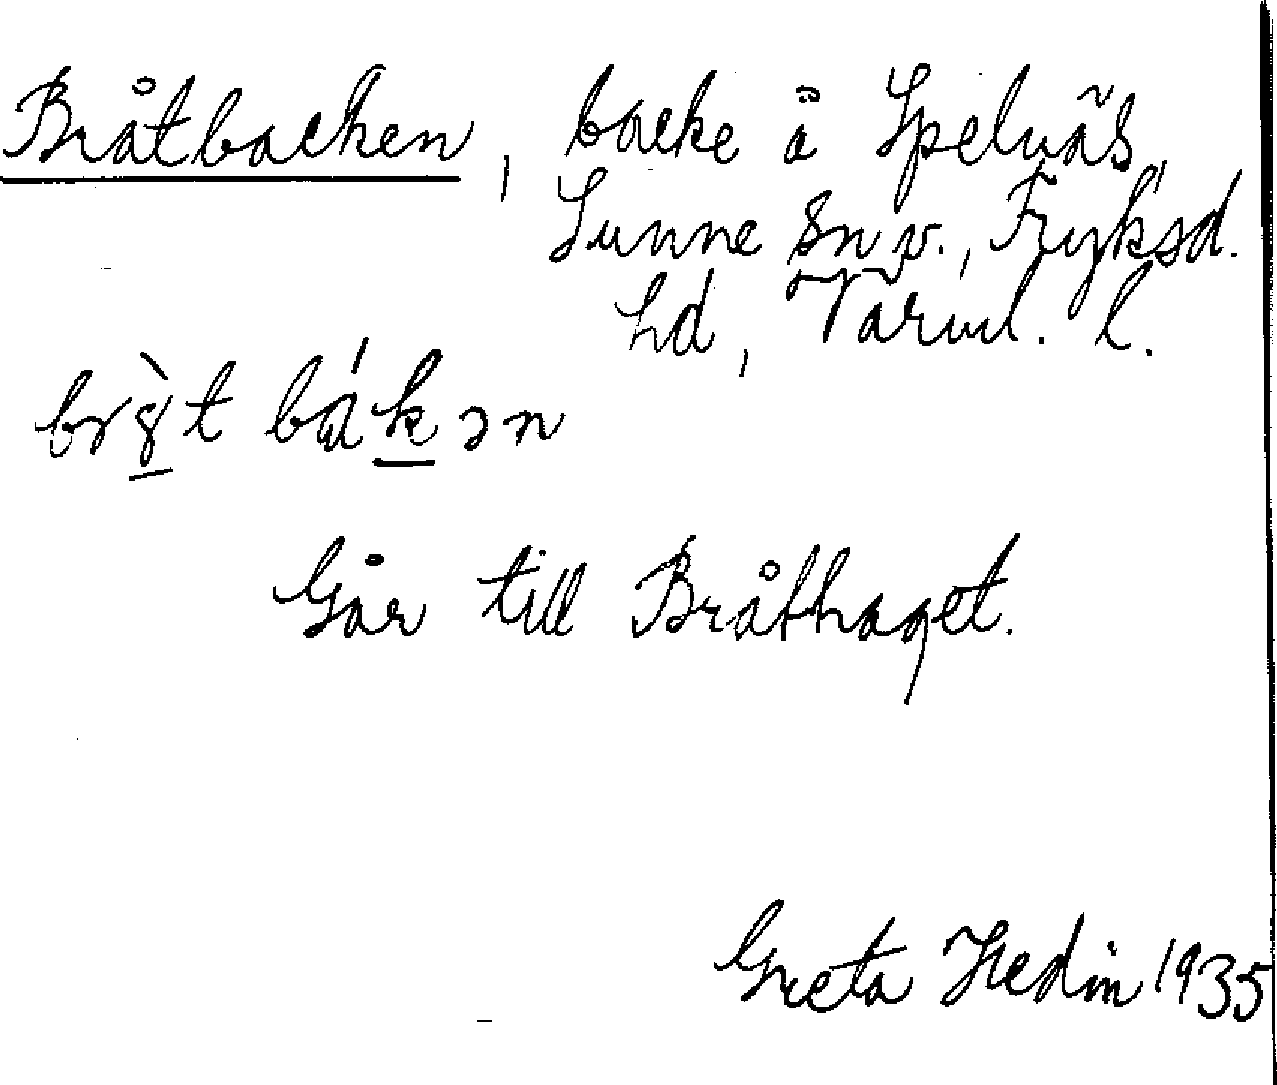 Bråtbacken, backe å Spelnäs,
Sunne sn v., Fryksd.
hd, Värml. l.
br8̀t bákən
Går till Bråthaget.
Greta Hedin 1935